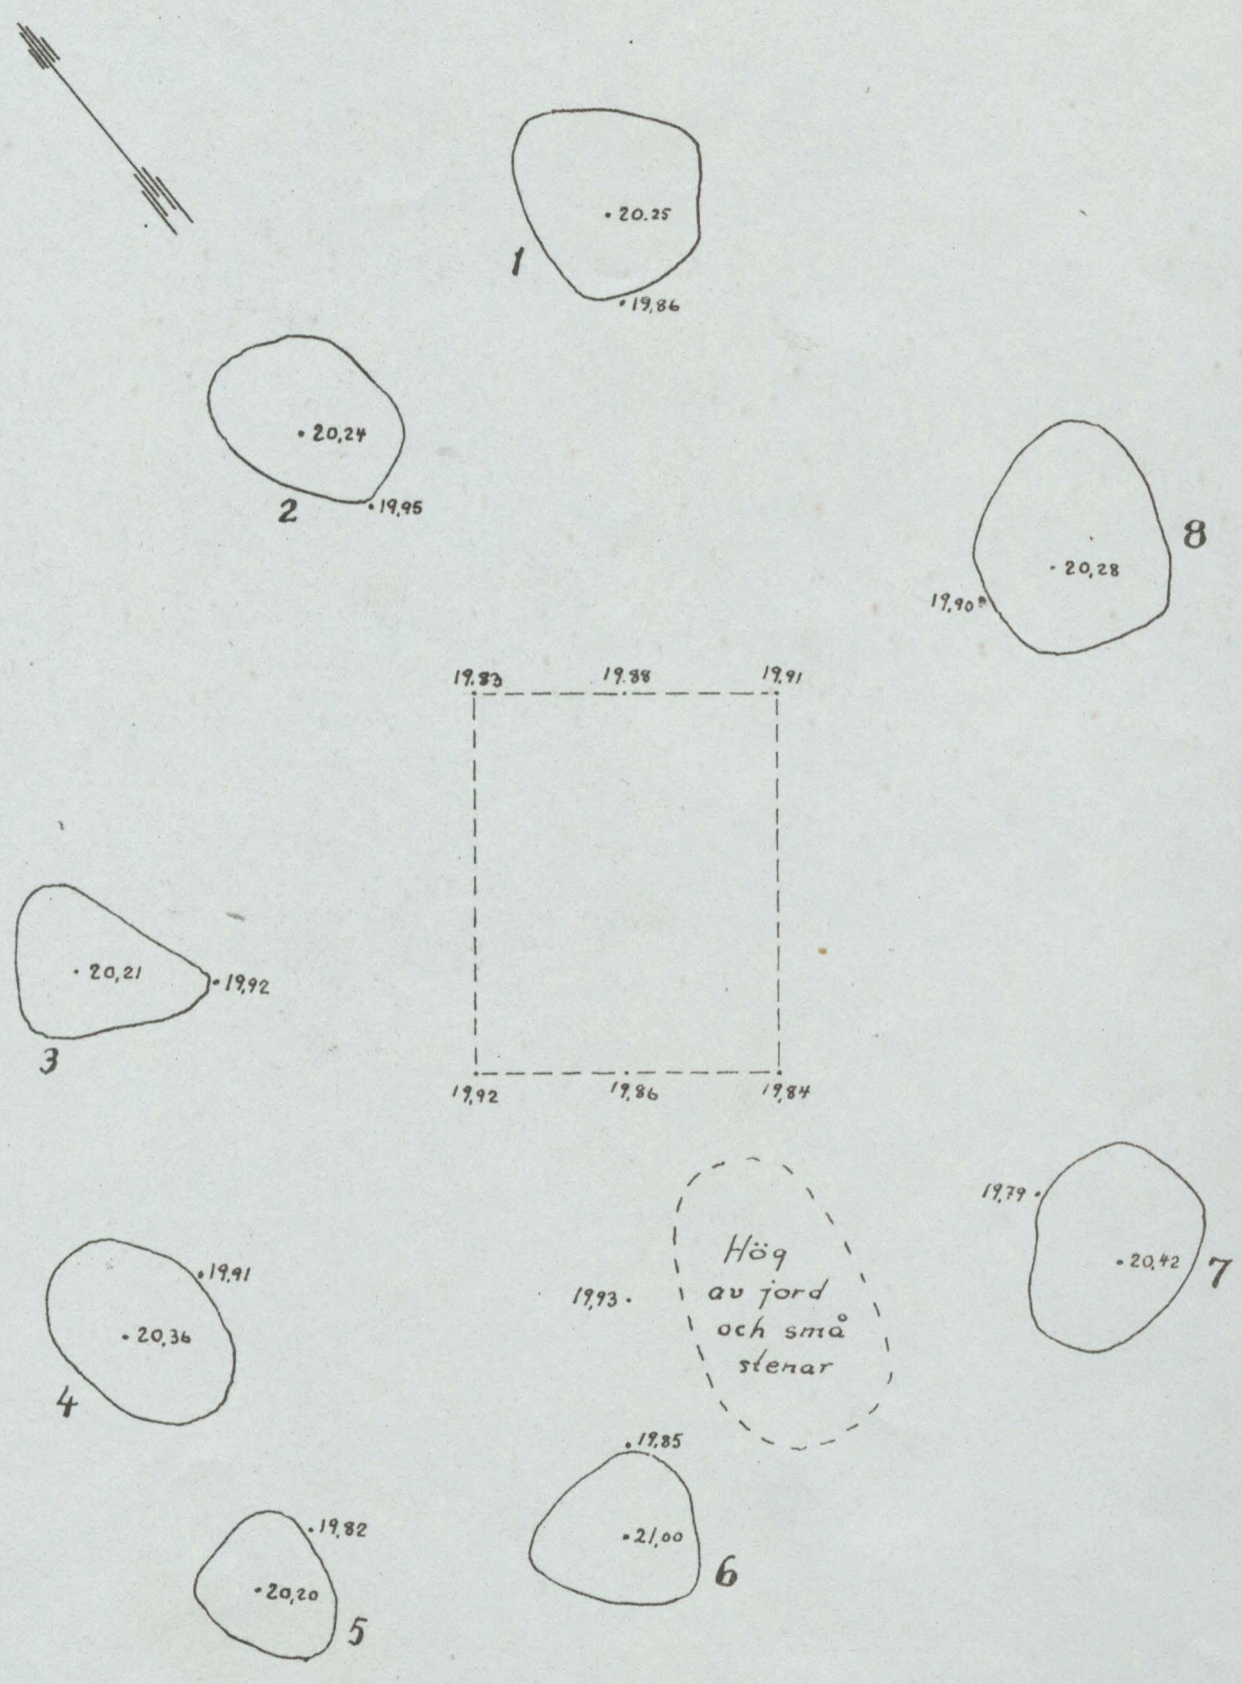 20.25
1
19,86
20,24
2
19,95
8
20,28
19,90
19.83
19.88
19,91
20,21
19,92
3
19,92
19,86
19,84
19,79
20,42
7
Hög
av jord
och små
stenar
19,93
19,91
20,36
4
19,85
21,00
6
19,82
20,20
5